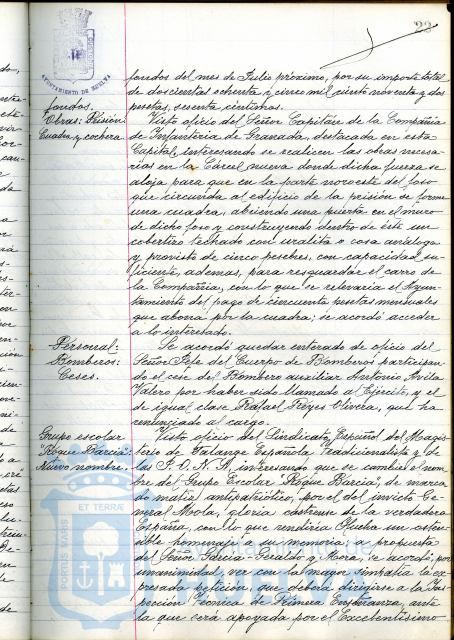 22
AYUNTAMIENTO DE HUELVA
fondos del mes de Julio próximo, por su importe total
de doscientas ochenta y cinco mil ciento noventa y dos
pesetas, sesenta céntimos.
fondos.
Obras: Prisión
Cuadra y cochera
Visto oficio del Señor Capitán de la Compañía
de Infantería de Granada, destacada en esta
Capital, interesando se realicen las obras necesa-
rias en la Cárcel nueva donde dicha fuerza se
aloja para que en la parte noroeste del foso
que circunda al edificio de la prisión se forme
una cuadra, abriendo una puerta en el muro
de dicho foso y construyendo dentro de éste un
cobertizo techado con uralita o cosa análoga
y provisto de cinco pesebres, con capacidad su-
ficiente, además, para resguardar el carro de
la Compañía, con lo que se relevaría el Ayun-
tamiento del pago de cincuenta pesetas mensuales
que abona por la cuadra; se acordó acceder
a lo interesado.
Personal:
Bomberos:
Ceses.
Se acordó quedar enterado de oficio del
Señor Jefe del Cuerpo de Bomberos participan-
do el cese del Bombero auxiliar Antonio Avila
Valero por haber sido llamado al Ejército, y el
de igual clase Rafael Reyes Olivera, que ha
renunciado al cargo.
Grupo escolar
"Roque Barcia":
Nuevo nombre.
Visto oficio del Sindicato Español del Magis-
terio de Falange Española Tradicionalista y de
las J.O.N.S., interesando que se cambie el nom-
bre del Grupo Escolar "Roque Barcia", de marca-
do matiz antipatriótico, por el del invicto Ge-
neral Mola, gloria castrense de la verdadera
España, con lo que rendiría Huelva un osten-
sible homenaje a su memoria; a propuesta
del Señor García-Geraldo y Mora, se acordó, por
unanimidad, ver con la mayor simpatía la ex-
presada petición, que deberá dirigirse a la Ins-
pección Técnica de Primera Enseñanza, ante
la que será apoyada por el Excelentísimo
PORTUS MARIS ET TERRAE